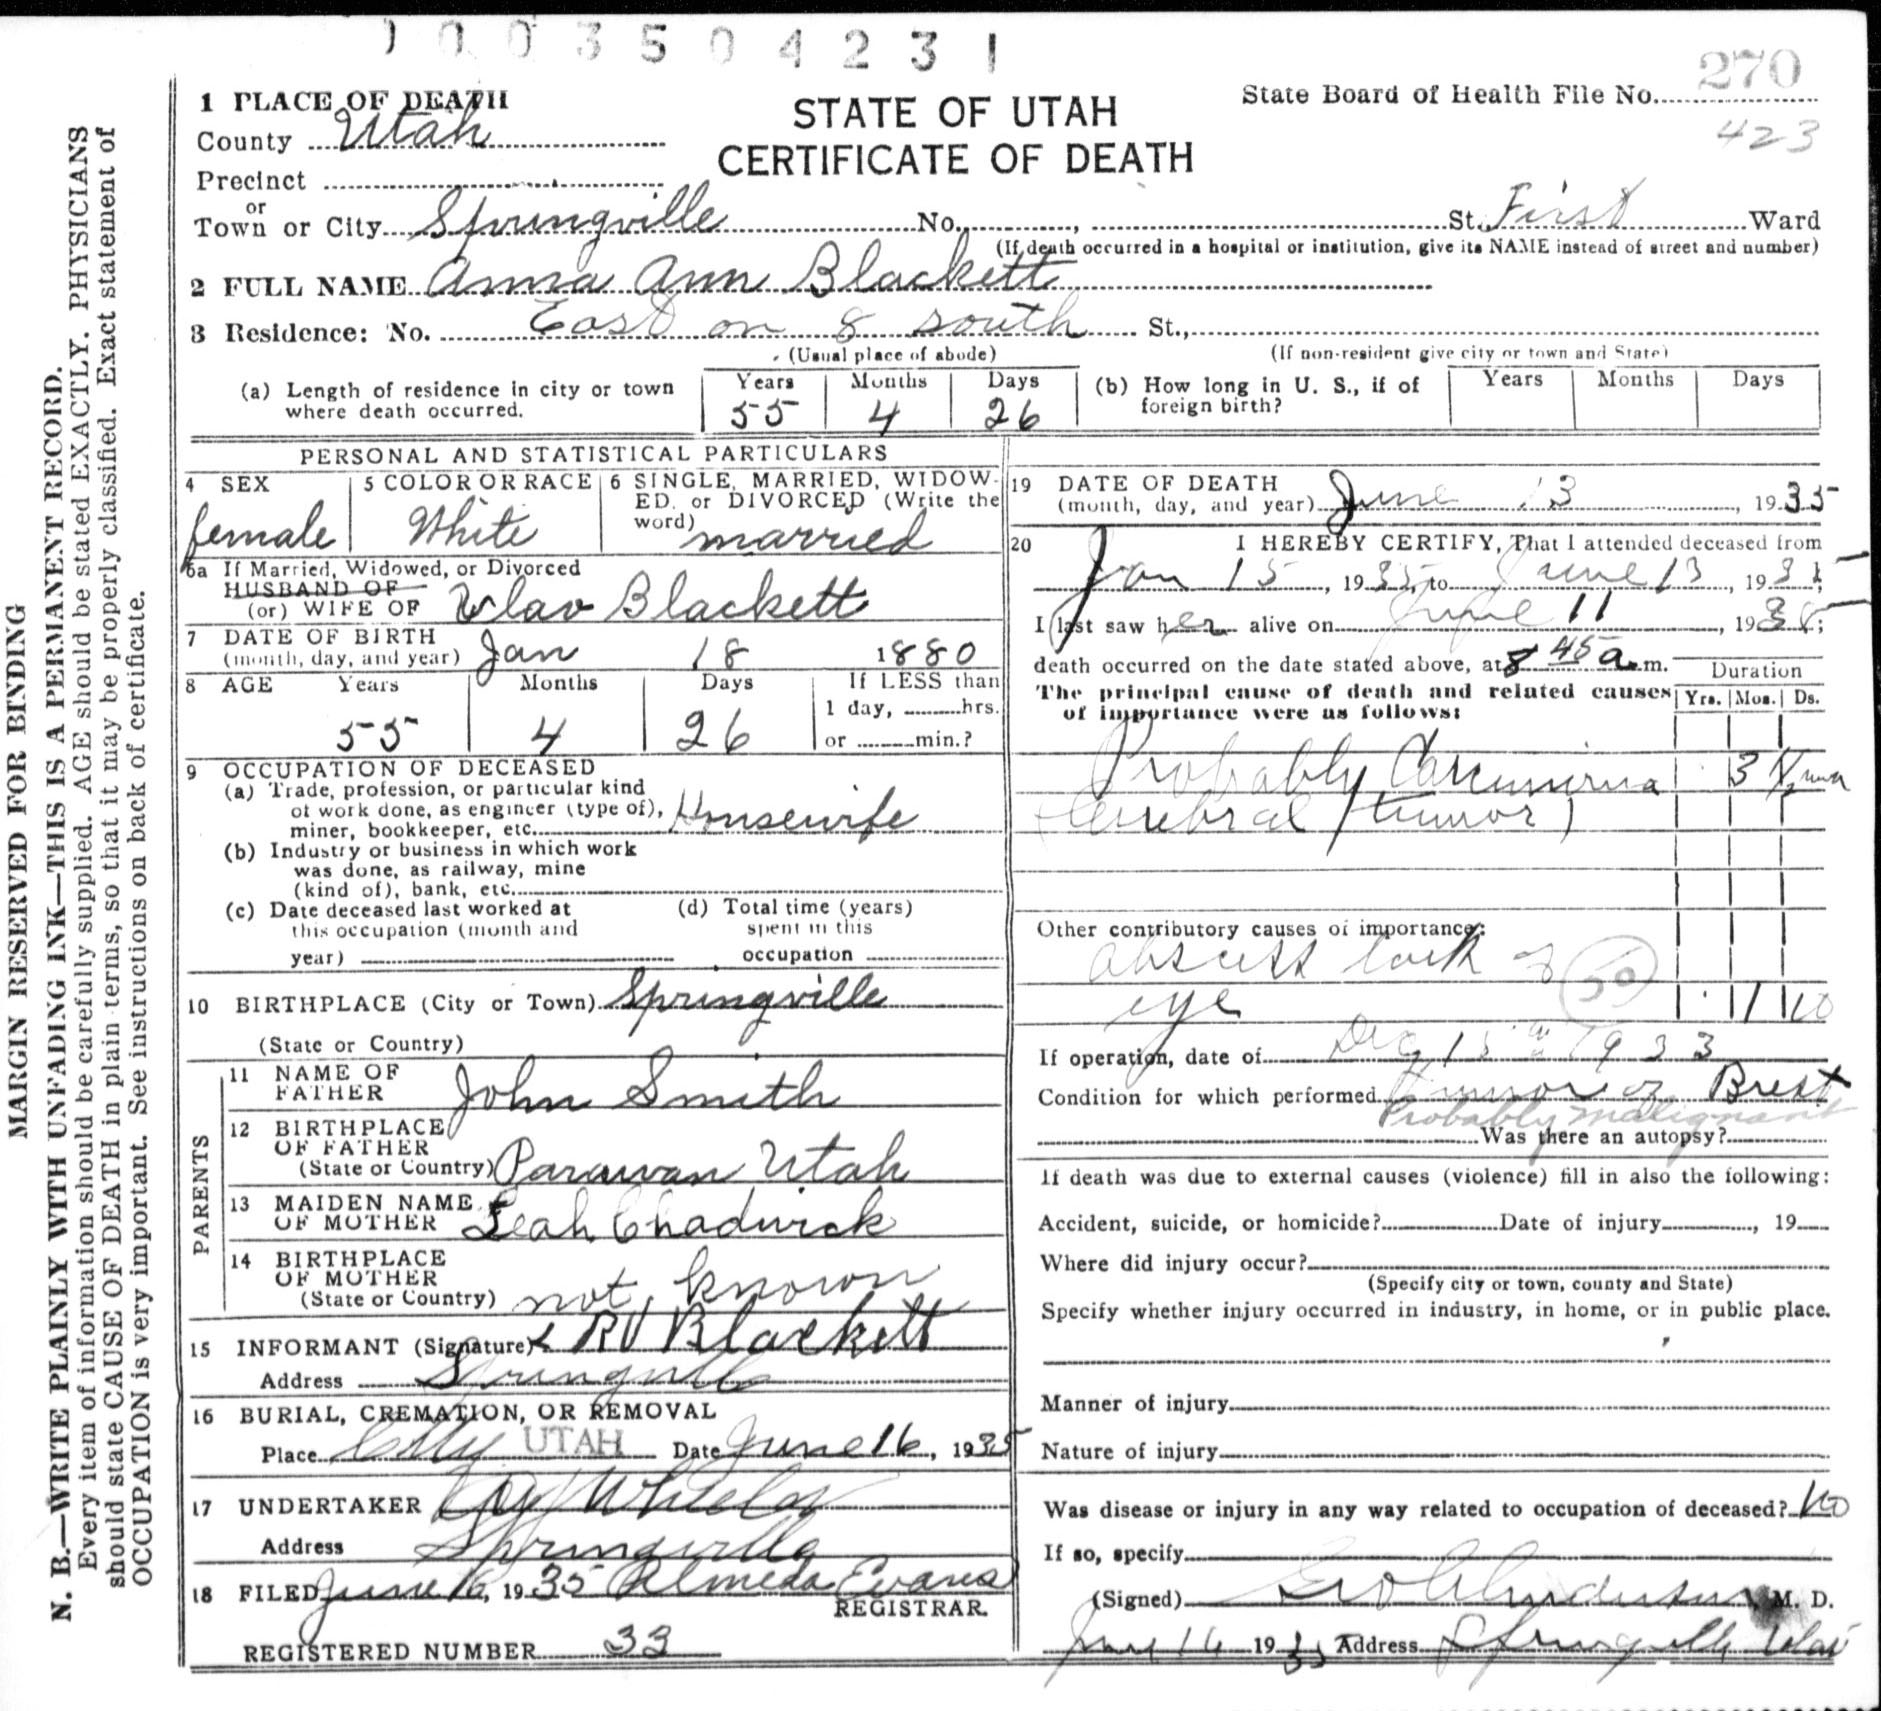 1003504231
270
1 PLACE OF DEATH
STATE OF UTAH
State Board of Health File No.
423
County Utah
CERTIFICATE OF DEATH
Precinct
or
Town or City Springville No. , St. First Ward
(If death occurred in a hospital or institution, give its NAME instead of street and number)
2 FULL NAME Anna Ann Blackett
3 Residence: No. East on 8 south St.,
(Usual place of abode) (If non-resident give city or town and State)
(a) Length of residence in city or town where death occurred. Years 55 Months 4 Days 26
(b) How long in U. S., if of foreign birth? Years Months Days
PERSONAL AND STATISTICAL PARTICULARS
4 SEX female
5 COLOR OR RACE White
6 SINGLE, MARRIED, WIDOW-
ED, or DIVORCED (Write the
word) married
6a If Married, Widowed, or Divorced
HUSBAND OF
(or) WIFE OF Blackett
7 DATE OF BIRTH
(month, day, and year) Jan 18 1880
8 AGE Years 55 Months 4 Days 26
If LESS than
1 day, hrs.
or min.?
9 OCCUPATION OF DECEASED
(a) Trade, profession, or particular kind
of work done, as engineer (type of),
miner, bookkeeper, etc. Housewife
(b) Industry or business in which work
was done, as railway, mine
(kind of), bank, etc.
(c) Date deceased last worked at
this occupation (month and
year)
(d) Total time (years)
spent in this
occupation
10 BIRTHPLACE (City or Town) Springville
(State or Country)
PARENTS
11 NAME OF
FATHER John Smith
12 BIRTHPLACE
OF FATHER
(State or Country) Parowan Utah
13 MAIDEN NAME
OF MOTHER Leah Chadwick
14 BIRTHPLACE
OF MOTHER
(State or Country) not known
15 INFORMANT (Signature) x RV Blackett
Address Springville
16 BURIAL, CREMATION, OR REMOVAL
Place City UTAH Date June 16, 1935
17 UNDERTAKER
Address Springville
18 FILED June 16, 1935 Almeda Evans
REGISTRAR.
REGISTERED NUMBER 33
19 DATE OF DEATH
(month, day, and year) June 13, 1935
20 I HEREBY CERTIFY, That I attended deceased from
Jan 15, 1935, to June 13, 1935
I last saw her alive on June 11, 1935;
death occurred on the date stated above, at 8 45 a.m. Duration
The principal cause of death and related causes
of importance were as follows: Yrs. Mos. Ds.
Probably Carcinoma 3
(Cerebral tumor)
Other contributory causes of importance:
abscess back of 50
eye 1 10
If operation, date of Dec 15 1933
Condition for which performed Tumor of Brest
Probably malignant
Was there an autopsy?
If death was due to external causes (violence) fill in also the following:
Accident, suicide, or homicide? Date of injury , 19
Where did injury occur?
(Specify city or town, county and State)
Specify whether injury occurred in industry, in home, or in public place.
Manner of injury
Nature of injury
Was disease or injury in any way related to occupation of deceased? No
If so, specify
(Signed) Geo Anderson, M. D.
June 16 1935 Address Springville Utah
MARGIN RESERVED FOR BINDING
N. B.—WRITE PLAINLY WITH UNFADING INK—THIS IS A PERMANENT RECORD.
Every item of information should be carefully supplied. AGE should be stated EXACTLY. PHYSICIANS
should state CAUSE OF DEATH in plain terms, so that it may be properly classified. Exact statement of
OCCUPATION is very important. See instructions on back of certificate.